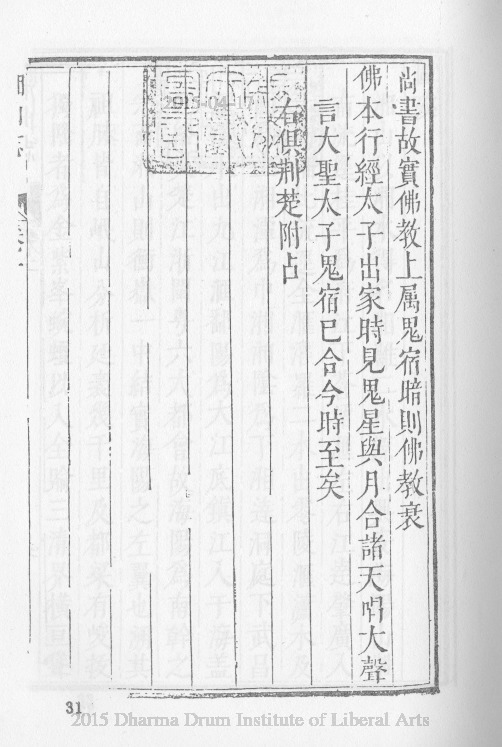 尚書故實佛教上属鬼宿暗則佛教衰
佛本行經太子出家時見鬼星與月合諸天唱大聲
言大聖太子鬼宿已合今時至矣
右俱荆楚附占
2015-04-17
31
2015 Dharma Drum Institute of Liberal Arts